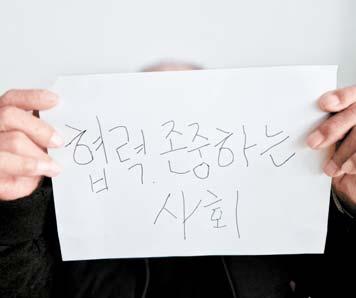 협력.존중하는
사회